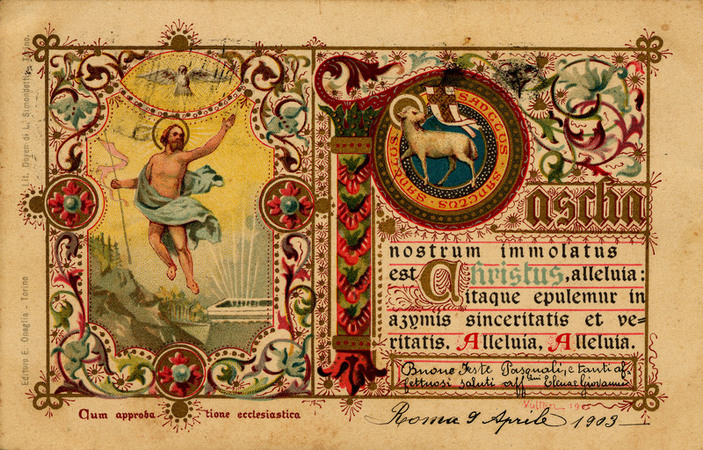 SANCTUS · SANCTUS · SANCTUS
Pascha
nostrum immolatus
est Christus, alleluia:
itaque epulemur in
azymis sinceritatis et ve-
ritatis. Alleluia, Alleluia.
Buone Feste Pasquali, e tanti af-
fettuosi saluti aff.mi Elena e Giovanni
Roma 9 Aprile 1903
Cum approba tione ecclesiastica
Editore E. Onaglia - Torino
Lit. Doyen di L. Simondetti - Torino